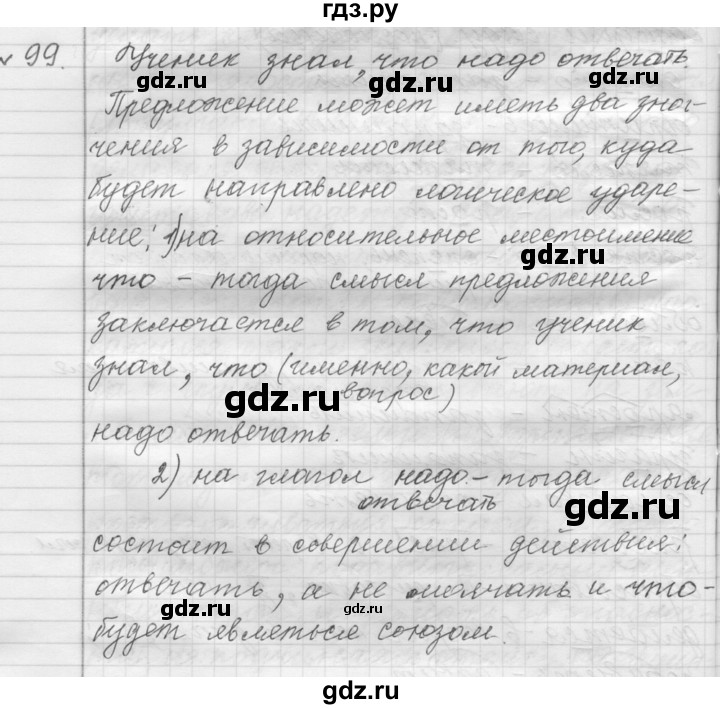 гдз.ру
№ 99. Ученик знал, что надо отвечать.
Предложение может иметь два зна-
чения в зависимости от того, куда
будет направлено логическое ударе-
ние: 1) на относительное местоимение
что – тогда смысл предложения
заключается в том, что ученик
знал, что (именно, какой материал,
вопрос)
gdz.ru
gdz.ru
надо отвечать.
2) на глагол надо – тогда смысл
отвечать
gdz.ru
состоит в совершении действия:
отвечать, а не молчать и что-
gdz.ru
gdz.ru
будет являться союзом.
gdz.ru